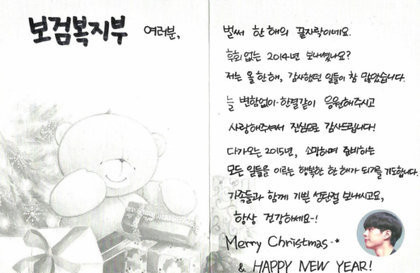 보검복지부 여러분,
벌써 한 해의 끝자락이네요.
후회 없는 2014년 보내셨나요?
저는 올 한해, 감사했던 일들이 참 많았습니다.
늘 변함없이 한결같이 응원해주시고
사랑해주셔서 진심으로 감사드립니다!
다가오는 2015년, 소망하며 준비하는
모든 일들을 이루는 행복한 한 해가 되기를 기도합니다.
가족들과 함께 기쁜 성탄절 보내시고요,
항상 건강하세요~!
Merry Christmas
& HAPPY NEW YEAR!